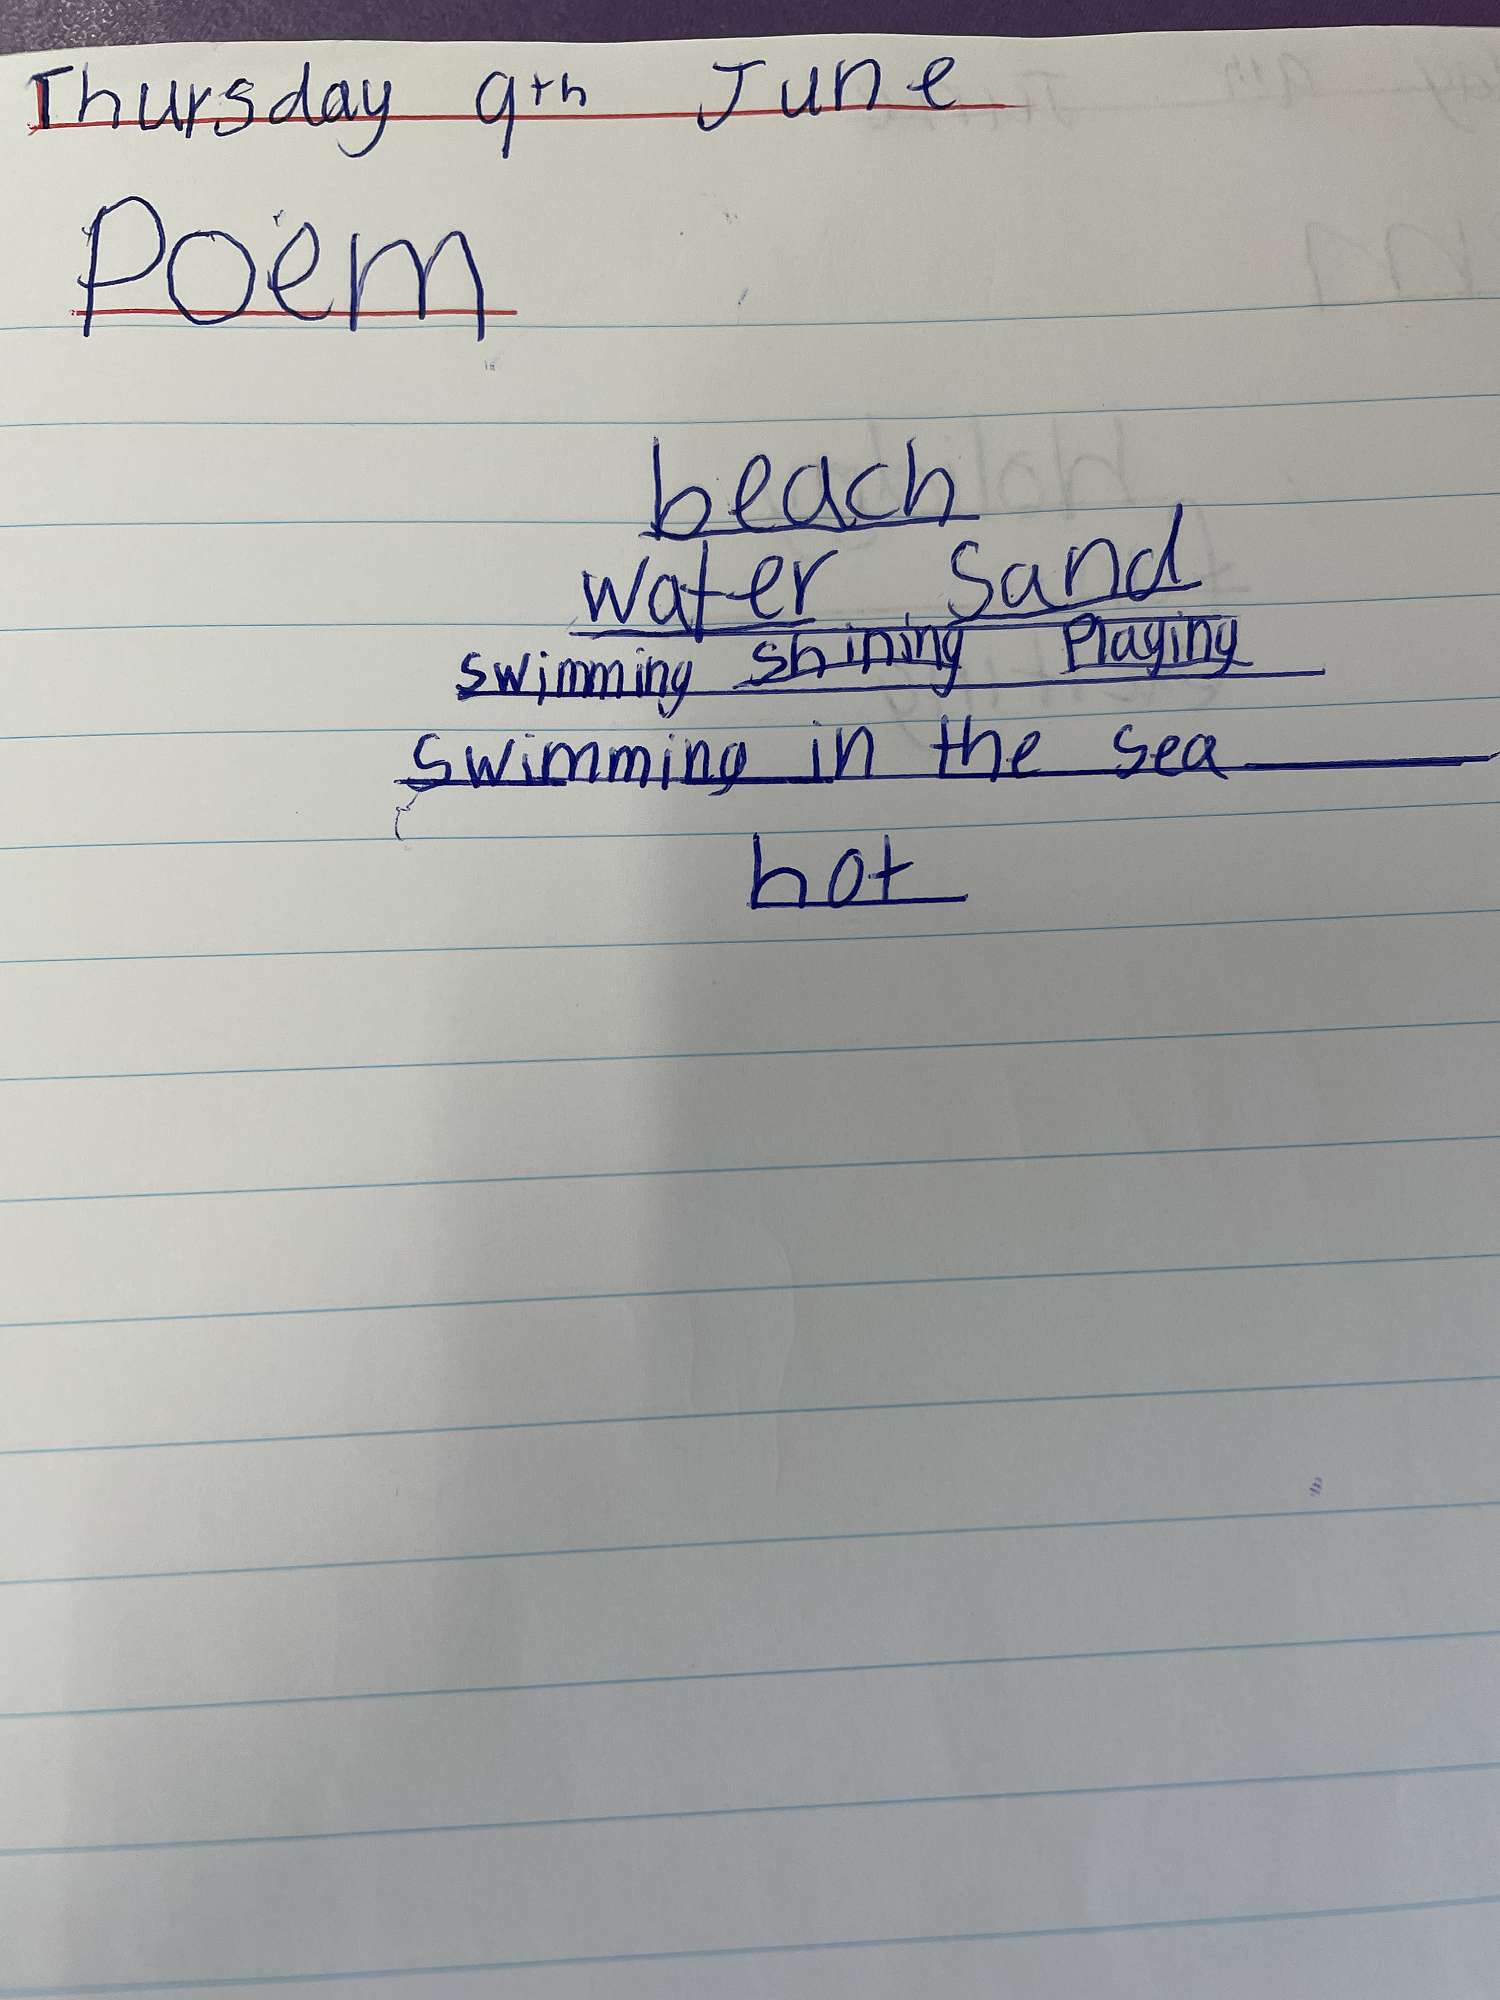 Thursday 9th June
Poem
beach
water sand
swimming shining Playing
swimming in the sea
hot